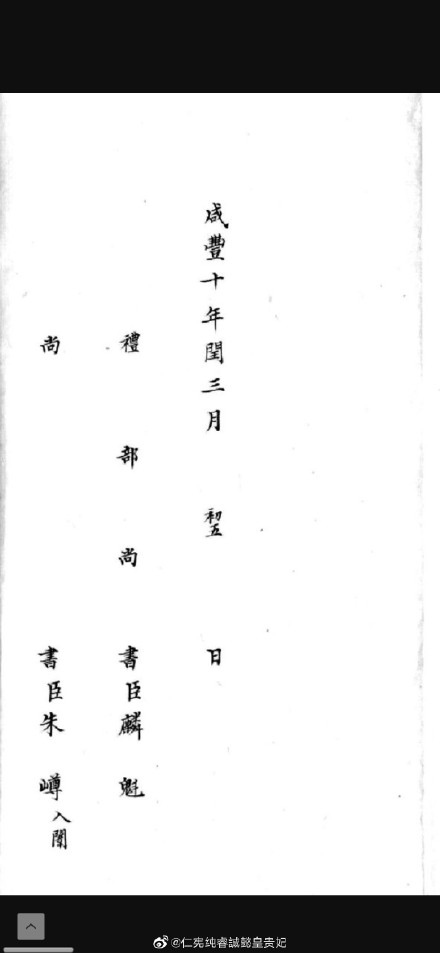 咸豐十年閏三月初五日
禮部尚書臣麟魁
尚書臣朱嶟入闈
@仁宪纯睿誠懿皇贵妃